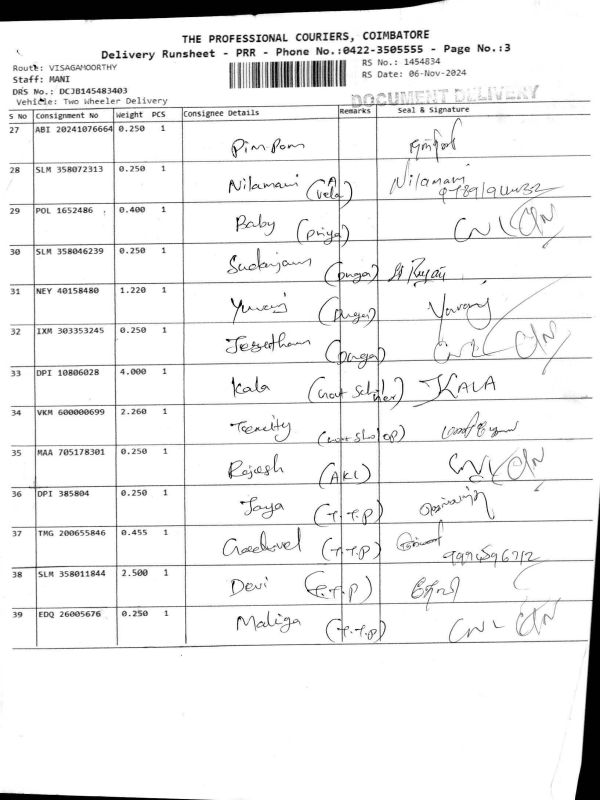 THE PROFESSIONAL COURIERS, COIMBATORE
Delivery Runsheet - PRR - Phone No.:0422-3505555 - Page No.:3
Route: VISAGAMOORTHY
RS No.: 1454834
Staff: MANI
RS Date: 06-Nov-2024
DRS No.: DCJB145483403
Vehicle: Two Wheeler Delivery
DOCUMENT DELIVERY
S No Consignment No Weight PCS Consignee Details Remarks Seal & Signature
27 ABI 20241076664 0.250 1 Pim Pom
28 SLM 358072313 0.250 1 Nilamani (Vela) Nilamani
29 POL 1652486 0.400 1 Baby (Priya)
30 SLM 358046239 0.250 1 (Durga)
31 NEY 40158480 1.220 1 Yuvaraj (Durga) Yuvaraj
32 IXM 303353245 0.250 1 (Durga)
33 DPI 10806028 4.000 1 Kala KALA
34 VKM 600000699 2.260 1
35 MAA 705178301 0.250 1 Rajesh (AKL)
36 DPI 385804 0.250 1 Jaya (T.T.P)
37 TMG 200655846 0.455 1 (T.T.P)
38 SLM 358011844 2.500 1 Devi (T.T.P) தேவி
39 EDQ 26005676 0.250 1 Maliga (T.T.P)